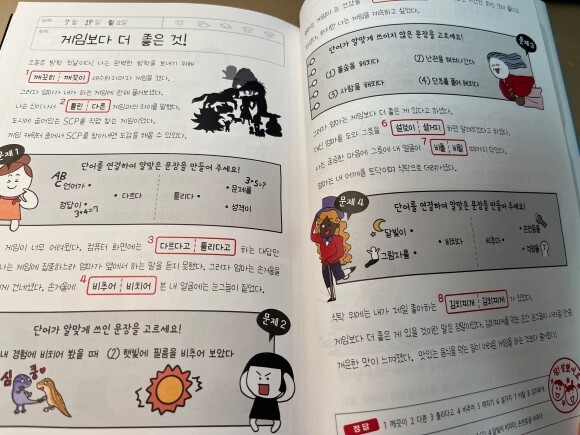 7월 19일 월요일
게임보다 더 좋은 것!
오늘은 방학 첫날이다! 나는 완벽한 방학을 보내기 위해
1 깨끗히 깨끗이 세수하자마자 게임을 켰다.
그러자 엄마가 내가 하는 게임에 대해 물어보셨다.
나는 신이 나서 2 틀린 다른 게임과의 차이를 말했다.
도시에 숨어있는 SCP를 직접 잡는 게임이었다.
게임 캐릭터 중에서 SCP를 찾아내면 도감을 채울 수 있었다.
문제 1
단어를 연결하여 알맞은 문장을 만들어 주세요!
AB
언어가
정답이
3+4=7
다르다
틀리다
3+5=?
문제를
성격이
게임이 너무 어려웠다. 컴퓨터 화면에는 3 다르다고 틀리다고 하는 대답만
나는 게임에 집중하느라 엄마가 옆에서 하는 말을 듣지 못했다. 그러자 엄마는 손거울을
건네셨다. 손거울에 4 비추어 비치어 본 내 얼굴에는 눈그늘이 짙었다.
문제 2
단어가 알맞게 쓰인 문장을 고르세요!
내 경험에 비치어 봤을 때 (2) 햇빛에 필름을 비추어 보았다
심쿵
나는 게임을 계속하고 싶었다.
문제 3
단어가 알맞게 쓰이지 않은 문장을 고르세요!
(1) 풀숲을 헤치다
(2) 난관을 헤쳐나간다
(3) 사람을 해치다
(4) 단추를 풀어 헤치다
그러자 엄마는 게임보다 더 좋은 게 있다고 하셨다.
대신 엄마를 도와 그릇을 6 설겆이 설거지 하면 알려주겠다고 하셨다.
나는 궁금한 마음에 그릇에 내 얼굴이 7 비출 비칠 때까지 닦았다.
엄마는 내 어깨를 토닥이며 식탁으로 데려가셨다.
문제 4
단어를 연결하여 알맞은 문장을 만들어 주세요!
달빛이
그림자를
비치다
비추다
손전등을
식탁 위에는 내가 제일 좋아하는 8 김치찌개 김치찌게 가 있었다.
게임보다 더 좋은 게 있을 것이란 말은 정말이었다. 김치찌개를 먹는 순간
개운한 맛이 느껴졌다. 맛있는 음식을 먹는 일이 어려운 게임을 하는 것보다 좋다니!
참 잘했어요
정답 1 깨끗이 2 다른 3 틀리다고 4 비추어 5 해치기 6 설거지 7 비칠 8 김치찌개